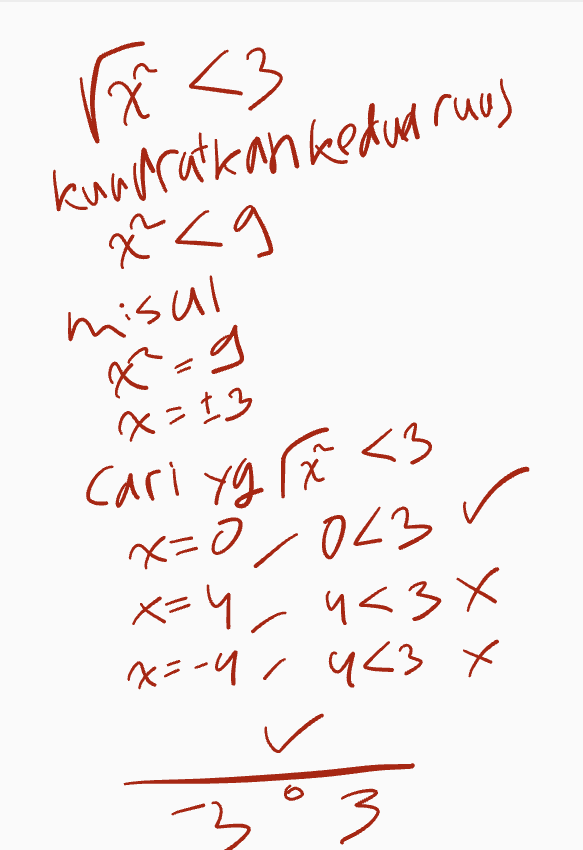 √x² < 3
kuadratkan kedua ruas
x² < 9
misal
x² = 9
x = ±3
cari yg √x² < 3
x = 0, 0 < 3 ✓
x = 4, 4 < 3 ×
x = -4, 4 < 3 ×
✓
-3 0 3